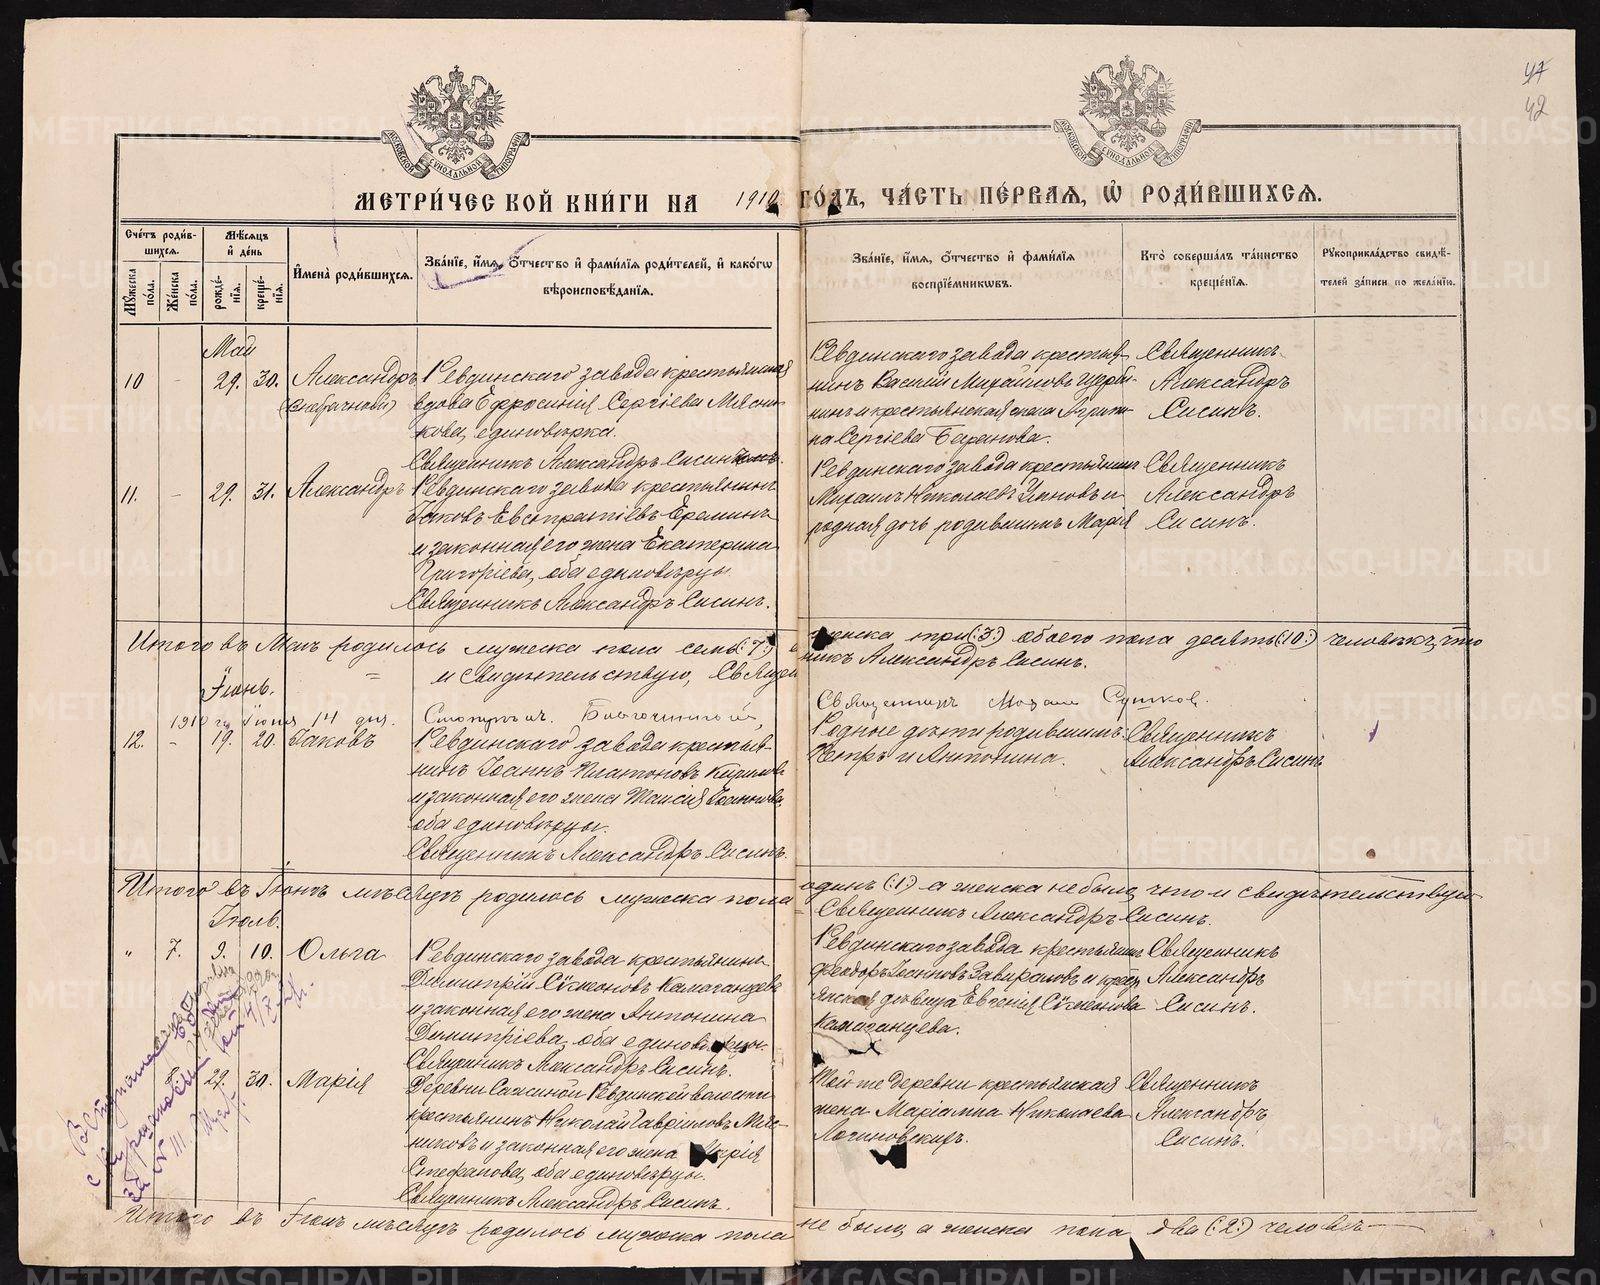 47
42
МОСКОВСКОЙ СѴНОДАЛЬНОЙ ТИПОГРАФІИ
МОСКОВСКОЙ СѴНОДАЛЬНОЙ ТИПОГРАФІИ
МЕТРИ́ЧЕСКОЙ КНИ́ГИ НА 1910 ГО́ДЪ, ЧА́СТЬ ПЕ́РВАЯ, Ѡ РОДИ́ВШИХСЯ.
Сче́тъ роди́вшихся.
Мꙋжеска пола.
Же́нска пола.
Мѣ́сяцъ и де́нь
рожде́нія.
креще́нія.
Имена̀ роди́вшихся.
Зва́ніе, и́мя, о́тчество и фами́лія роди́телей, и како́гѡ вѣроисповѣ́данія.
Зва́ніе, и́мя, о́тчество и фами́лія воспріе́мникѡвъ.
Кто̀ соверша́лъ та́инство креще́нія.
Рꙋкоприкла́дство свидѣ́телей за́писи по жела́нію.
Май
10 - 29. 30. Александръ (внебрачный)
Ревдинскаго завода крестьянская
вдова Ефросинія Сергіева Мясни-
кова, единовѣрка.
Священникъ Александръ Сисинъ.
Ревдинскаго завода крестья-
нинъ Василій Михайловъ Щерби-
нинъ и крестьянская жена Агрипи-
на Сергіева Баранова.
Священникъ
Александръ
Сисинъ.
11. - 29. 31. Александръ
Ревдинскаго завода крестьянинъ
Іаковъ Евстратіевъ Ереминъ
и законная его жена Екатерина
Григоріева, оба единовѣрцы.
Священникъ Александръ Сисинъ.
Ревдинскаго завода крестьянинъ
Михаилъ Николаевъ и
родная дочь родившимъ Марія
Священникъ
Александръ
Сисинъ.
Итого въ Маѣ родилось мужеска пола семь (:7:) женска три (:3:) обоего пола десять (:10:) человѣкъ, что
и свидѣтельствую, Священникъ Александръ Сисинъ.
Іюнь.
1910 г. Іюня 14 дня. Смотрѣлъ. Благочинный,
Священникъ
12. - 19. 20. Іаковъ
Ревдинскаго завода крестья-
нинъ Іоаннъ Платоновъ
и законная его жена Таисія Іоаннова
оба единовѣрцы.
Священникъ Александръ Сисинъ.
Родные дѣти родившимъ:
Петръ и Антонина.
Священникъ
Александръ Сисинъ
Итого въ Іюнѣ мѣсяцѣ родилось мужеска пола одинъ (:1:) а женска не было, что и свидѣтельствую
Священникъ Александръ Сисинъ.
Іюль.
" 7. 9. 10. Ольга
Ревдинскаго завода крестьянинъ
Димитрій Сѵмеоновъ Камаганцевъ
и законная его жена Антонина
Димитріева, оба единовѣрцы.
Священникъ Александръ Сисинъ.
Ревдинскаго завода крестьянинъ
Феодоръ Іоанновъ Завираловъ и крестьянская дѣвица Евгенія Сѵмеонова
Камаганцева.
Священникъ
Александръ
Сисинъ.
29. 30. Марія
Деревни Сажиной Ревдинской волости
крестьянинъ Николай Гавриловъ Мяс-
никовъ и законная его жена Марія
Стефанова, оба единовѣрцы.
Священникъ Александръ Сисинъ.
Той же деревни крестьянская
жена Маріамна Николаева
Логиновскихъ.
Священникъ
Александръ
Сисинъ.
Итого въ Іюлѣ мѣсяцѣ родилось мужеска пола не было, а женска пола два (:2:) человѣ-
METRIKI.GASO-URAL.RU